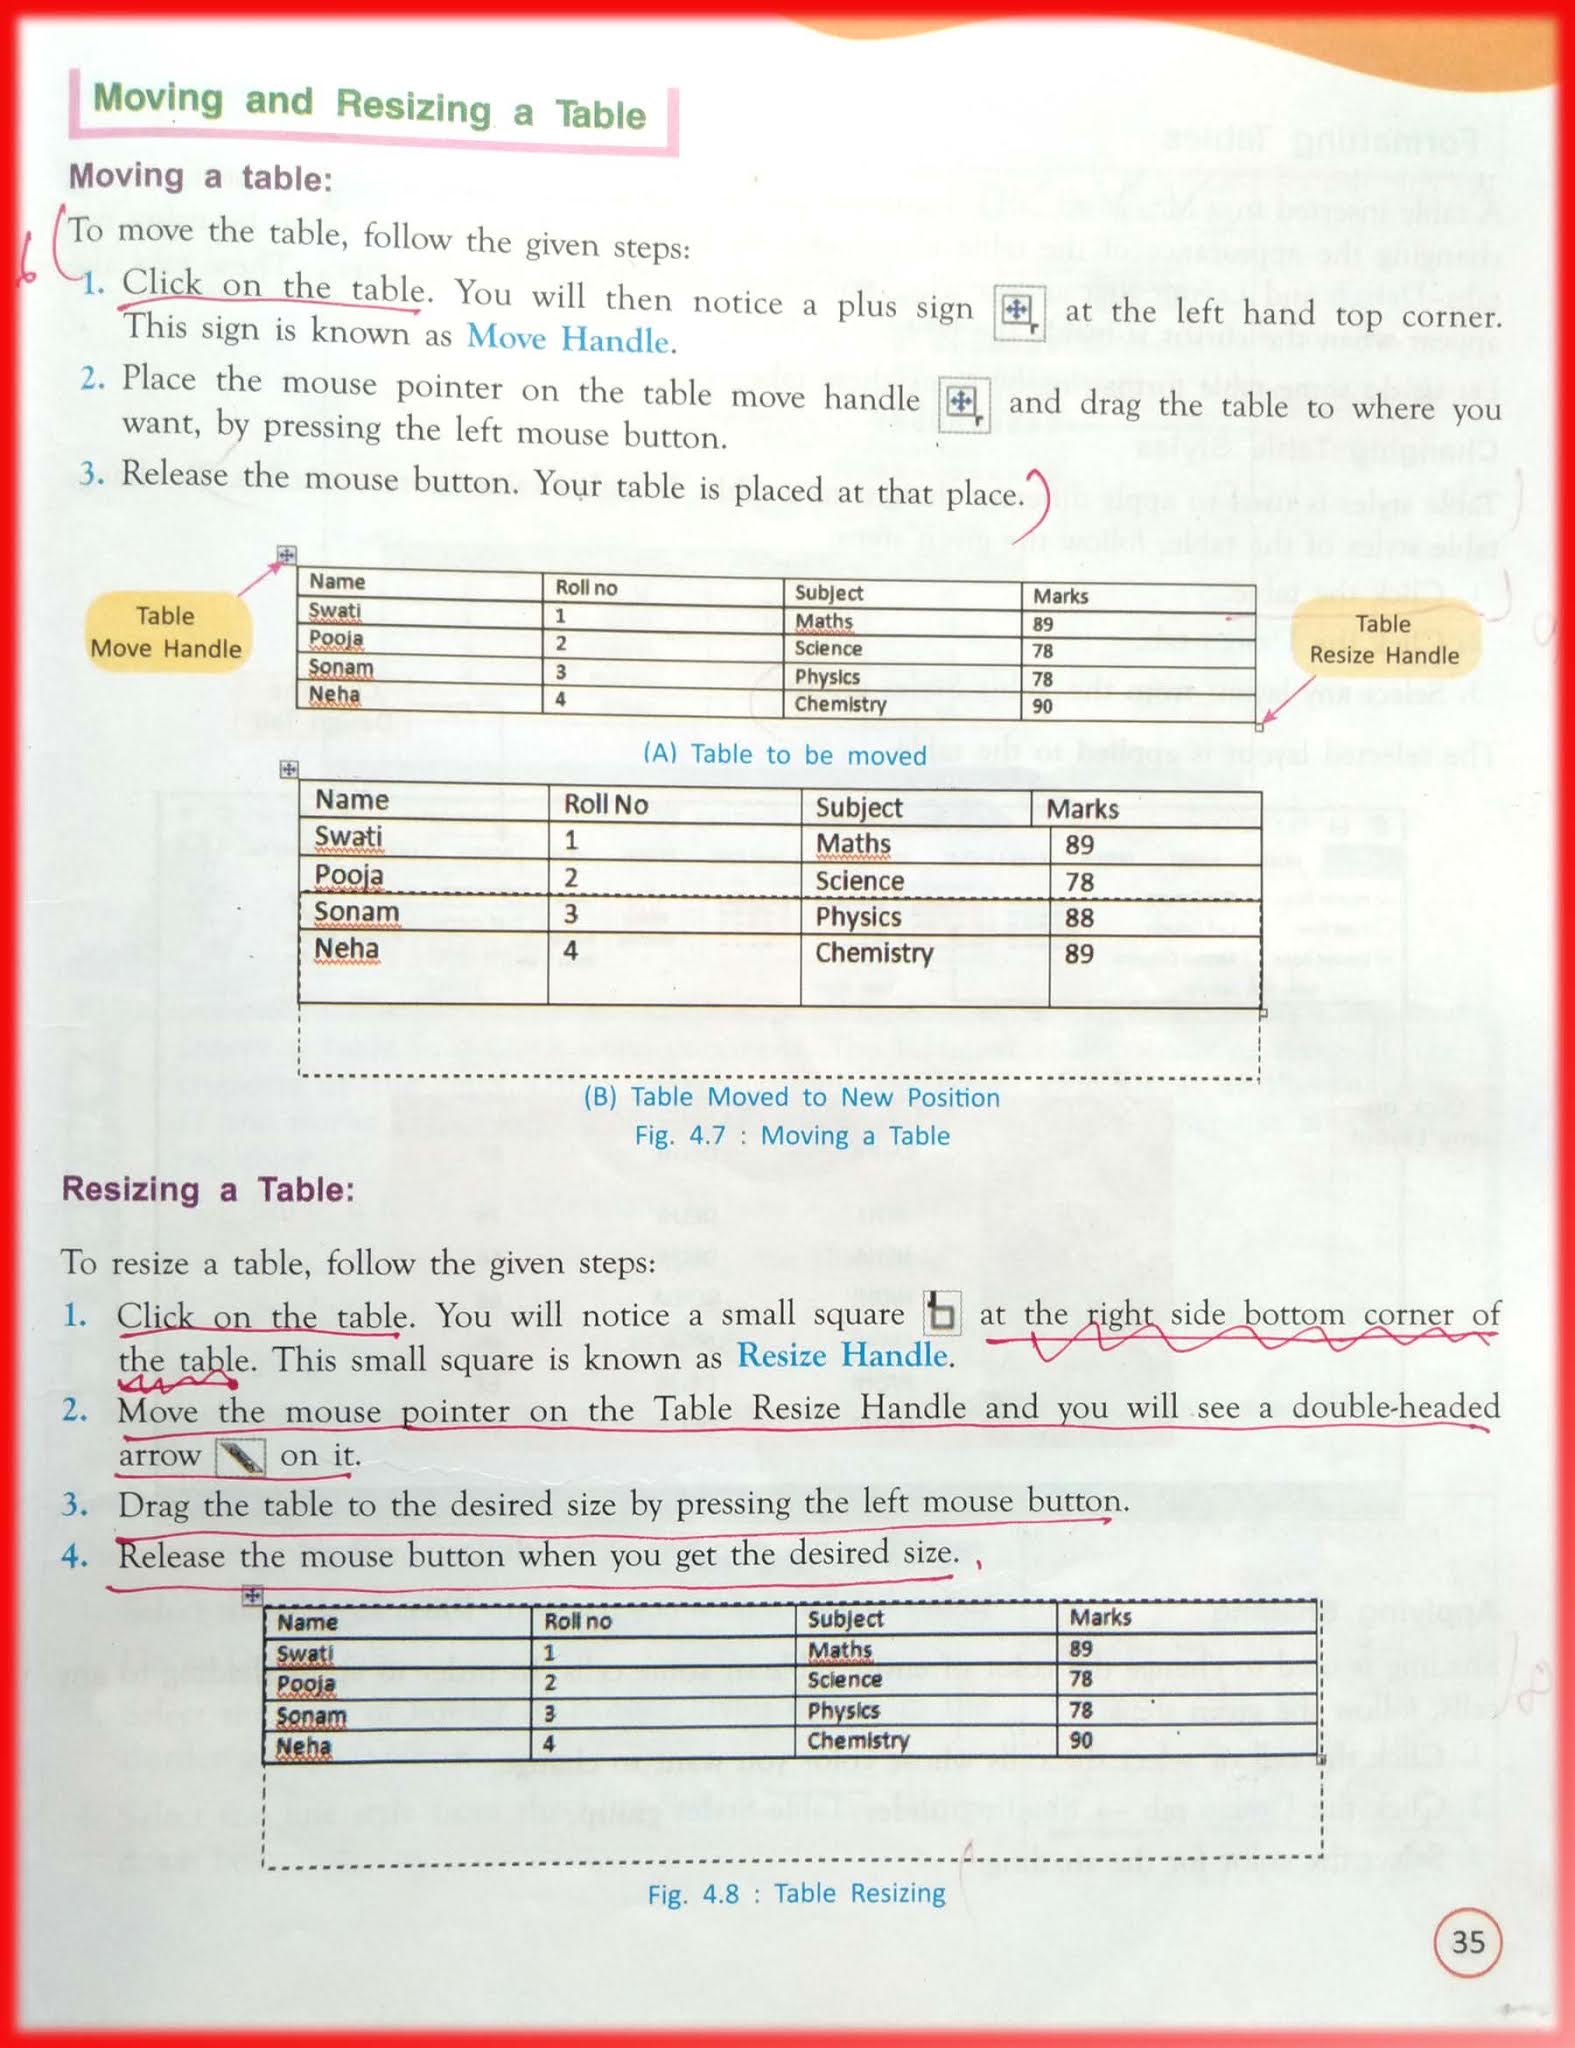 Moving and Resizing a Table
Moving a table:
To move the table, follow the given steps:
1. Click on the table. You will then notice a plus sign at the left hand top corner.
This sign is known as Move Handle.
2. Place the mouse pointer on the table move handle and drag the table to where you
want, by pressing the left mouse button.
3. Release the mouse button. Your table is placed at that place.
Table
Move Handle
Name Roll no Subject Marks
Swati 1 Maths 89
Pooja 2 Science 78
Sonam 3 Physics 78
Neha 4 Chemistry 90
Table
Resize Handle
(A) Table to be moved
Name Roll No Subject Marks
Swati 1 Maths 89
Pooja 2 Science 78
Sonam 3 Physics 88
Neha 4 Chemistry 89
(B) Table Moved to New Position
Fig. 4.7 : Moving a Table
Resizing a Table:
To resize a table, follow the given steps:
1. Click on the table. You will notice a small square at the right side bottom corner of
the table. This small square is known as Resize Handle.
2. Move the mouse pointer on the Table Resize Handle and you will see a double-headed
arrow on it.
3. Drag the table to the desired size by pressing the left mouse button.
4. Release the mouse button when you get the desired size.
Name Roll no Subject Marks
Swati 1 Maths 89
Pooja 2 Science 78
Sonam 3 Physics 78
Neha 4 Chemistry 90
Fig. 4.8 : Table Resizing
35